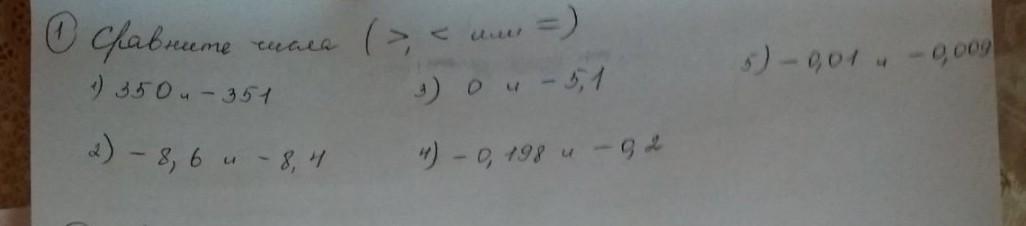 ① Сравните числа (>, < или =)
1) 350 и -351
3) 0 и -5,1
5) -0,01 и -0,009
2) -8,6 и -8,4
4) -0,198 и -0,2